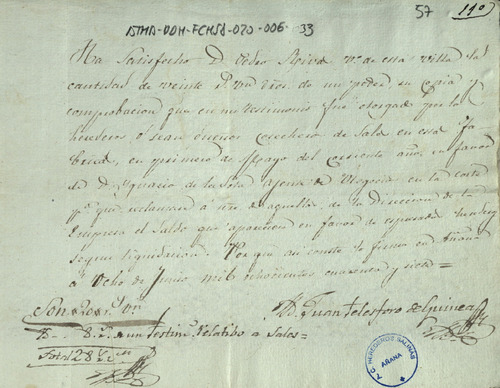 ATHA-DOH-FCHSA-020-006-33
57
110
Ha Satisfecho D. Pedro Oriva vº de esta villa la
cantidad de veinte rs. vn. de mi poder, su copia y
comprobacion que en mi testimonio fue otorgado por los
herederos ó sean dueños cosecheros de Sal en esta Fa
brica, en primero de Mayo del corriente año, en favor
de D. Ignacio de la Agente de Negocios en la corte
pª que reclamara á una de aquellas de la Direccion de la
Empresa el Saldo que aparecia en favor de espresados
segun liquidacion. Y para que asi conste lo firmo en Añana
á Ocho de Junio mil ochocientos cuarenta y siete=
Son 20 rs. vn.
D. Juan Telesforo de Guinea
8. De un testimº Relatibo a Sales=
Son 28 rs. vn.
A.C. HEREDEROS SALINAS
AÑANA